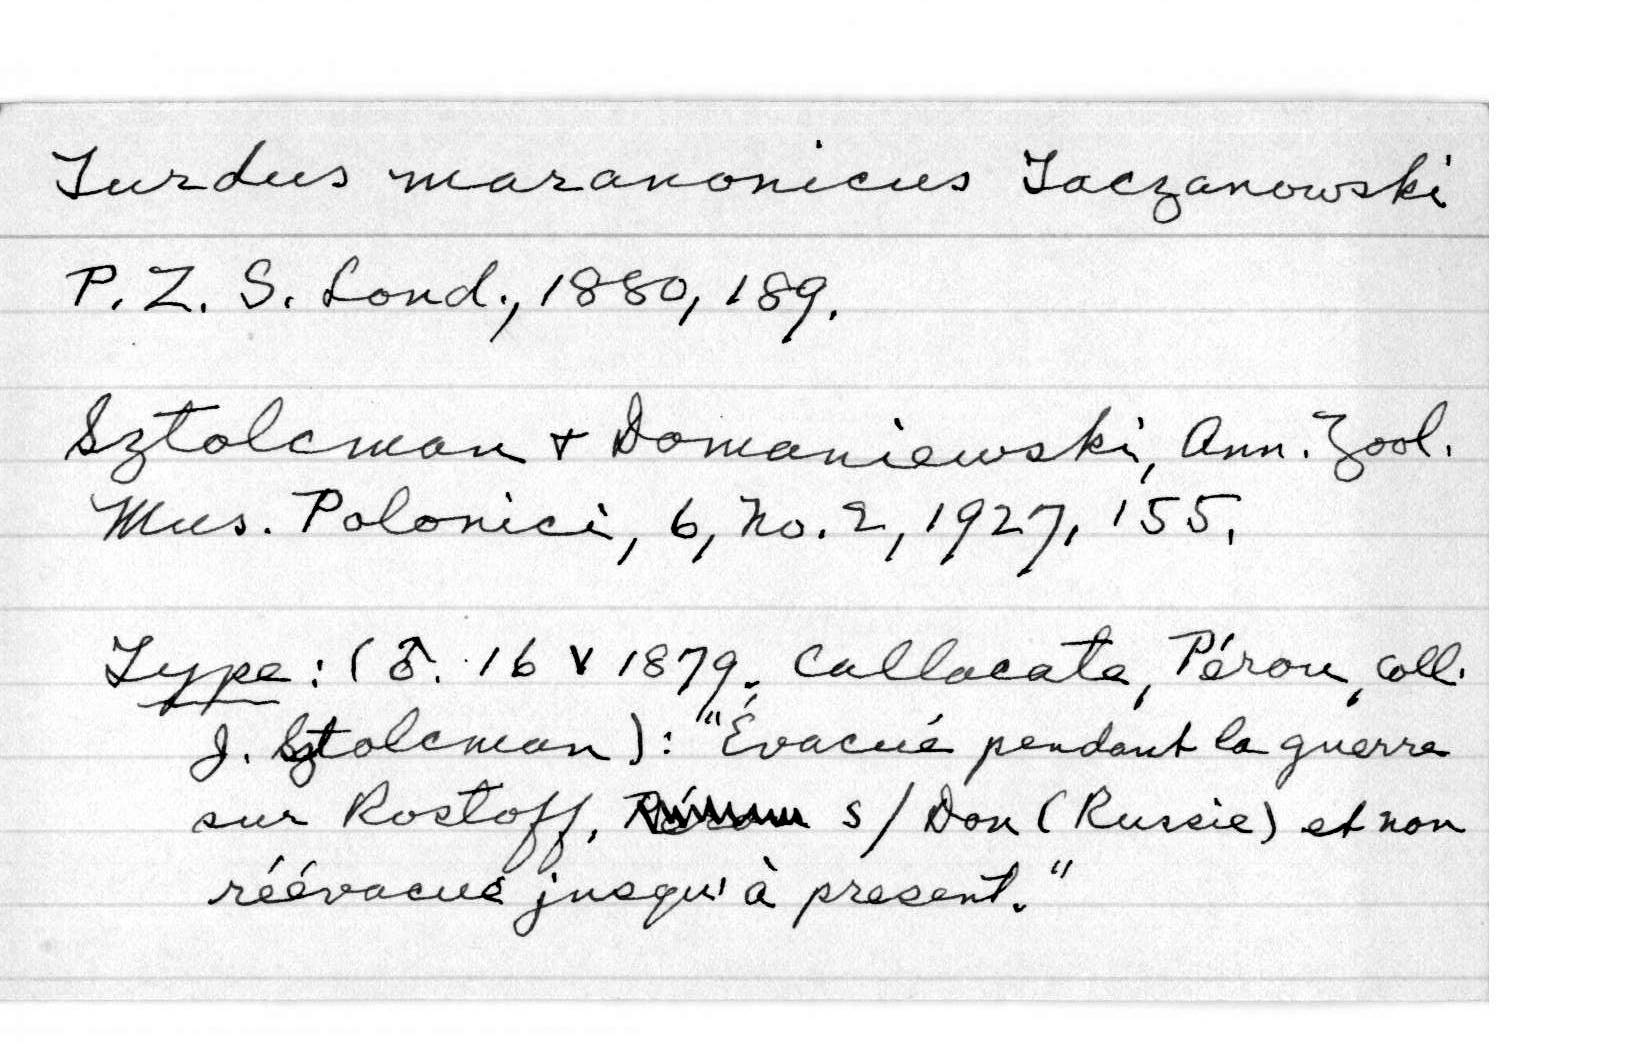 Turdus maranonicus Taczanowski
P. Z. S. Lond., 1880, 189.
Sztolcman + Domaniewski, Ann. Zool.
Mus. Polonici, 6, No. 2, 1927, 155.
Type: (♂. 16 V 1879, Callacate, Pérou, coll.
J. Sztolcman): "Évacué pendant la guerre
sur Rostoff, s/Don (Russie) et non
réévacué jusqu'à present."